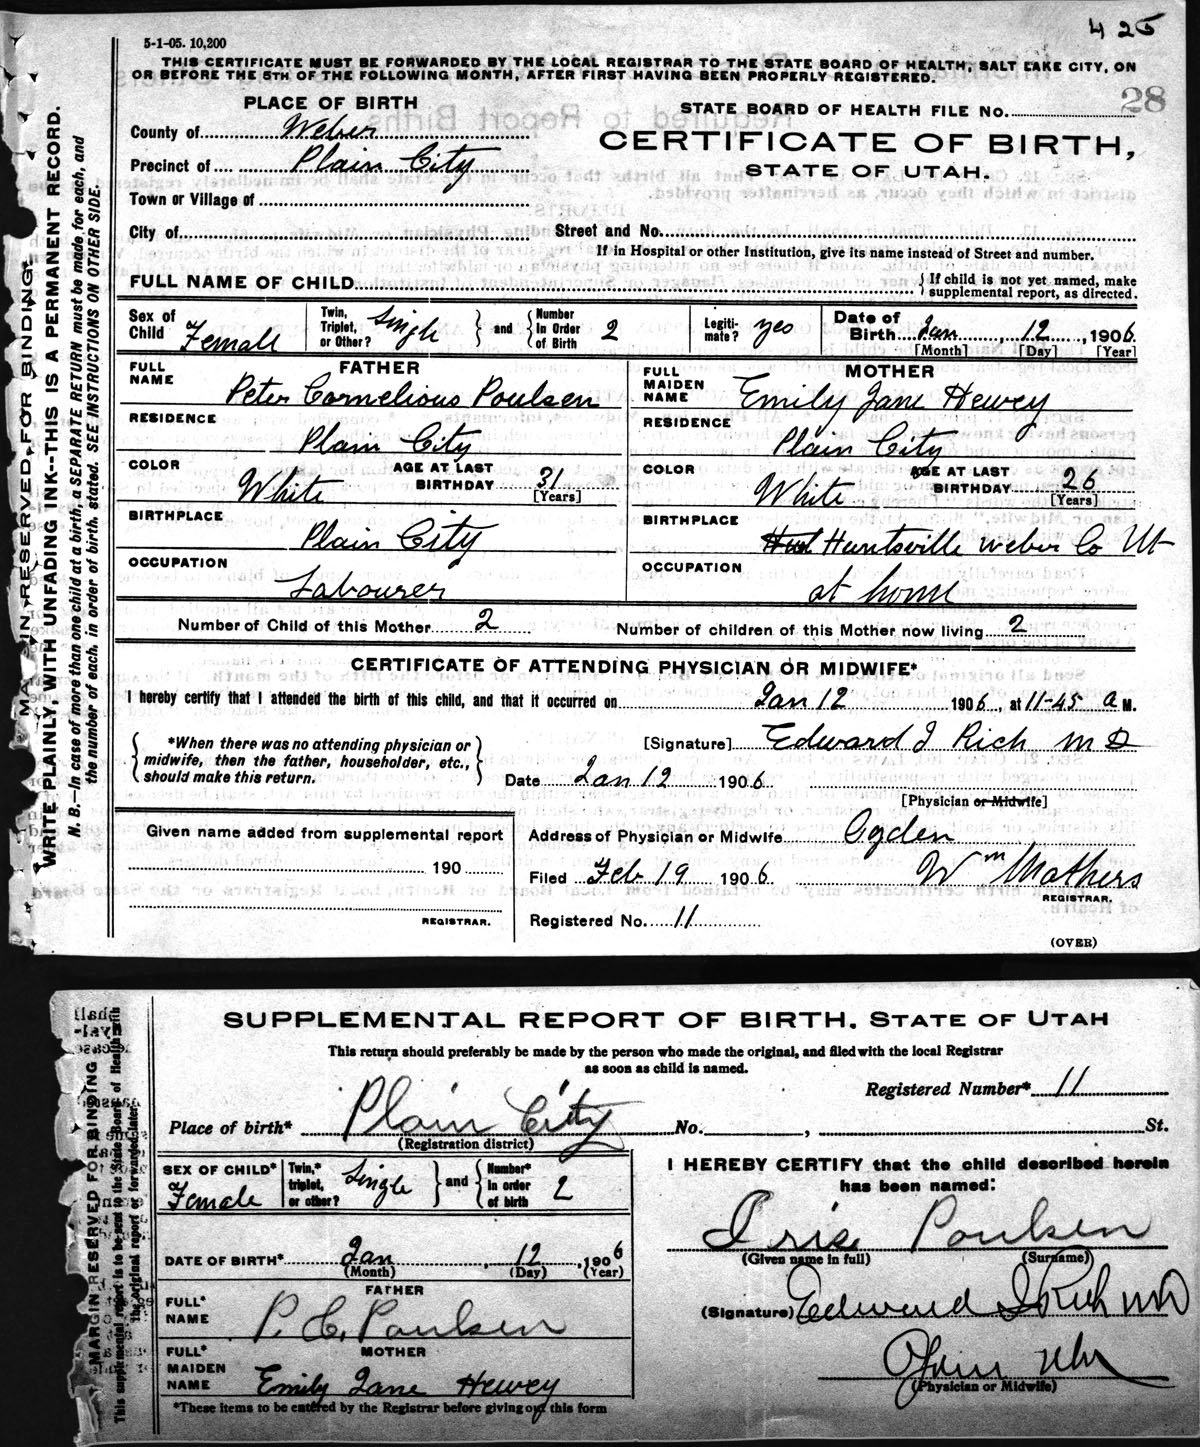 425
5-1-05. 10,200
THIS CERTIFICATE MUST BE FORWARDED BY THE LOCAL REGISTRAR TO THE STATE BOARD OF HEALTH, SALT LAKE CITY, ON
OR BEFORE THE 5TH OF THE FOLLOWING MONTH, AFTER FIRST HAVING BEEN PROPERLY REGISTERED.
28
PLACE OF BIRTH
STATE BOARD OF HEALTH FILE NO.
County of Weber
CERTIFICATE OF BIRTH,
Precinct of Plain City
STATE OF UTAH.
Town or Village of
City of
Street and No.
If in Hospital or other Institution, give its name instead of Street and number.
FULL NAME OF CHILD
If child is not yet named, make
supplemental report, as directed.
Sex of Child Female
Twin, Triplet, or Other? Single
and
Number in Order of Birth 2
Legitimate? yes
Date of Birth Jan 12, 1906
[Month] [Day] [Year]
FATHER
FULL NAME Peter Cornelious Poulsen
RESIDENCE Plain City
COLOR White
AGE AT LAST BIRTHDAY 31
[Years]
BIRTHPLACE Plain City
OCCUPATION Labourer
MOTHER
FULL MAIDEN NAME Emily Jane Hewey
RESIDENCE Plain City
COLOR White
AGE AT LAST BIRTHDAY 26
[Years]
BIRTHPLACE Huntsville Weber Co Ut
OCCUPATION at home
Number of Child of this Mother 2
Number of children of this Mother now living 2
CERTIFICATE OF ATTENDING PHYSICIAN OR MIDWIFE*
I hereby certify that I attended the birth of this child, and that it occurred on Jan 12 1906, at 11-45 a M.
*When there was no attending physician or
midwife, then the father, householder, etc.,
should make this return.
[Signature] Edward I Rich MD
Date Jan 12 1906
[Physician or Midwife]
Given name added from supplemental report
190
REGISTRAR.
Address of Physician or Midwife Ogden
Filed Feb 19 1906 Wm Mathers
REGISTRAR.
Registered No. 11
(OVER)
MARGIN RESERVED FOR BINDING
WRITE PLAINLY, WITH UNFADING INK--THIS IS A PERMANENT RECORD.
N. B.—In case of more than one child at a birth, a SEPARATE RETURN must be made for each, and
the number of each, in order of birth, stated. SEE INSTRUCTIONS ON OTHER SIDE.
SUPPLEMENTAL REPORT OF BIRTH. STATE OF UTAH
This return should preferably be made by the person who made the original, and filed with the local Registrar
as soon as child is named.
Registered Number* 11
Place of birth* Plain City No. , St.
(Registration district)
SEX OF CHILD* Female
Twin,* triplet, or other? Single
and
Number* in order of birth 2
DATE OF BIRTH* Jan 12, 1906
(Month) (Day) (Year)
FATHER
FULL* NAME P. C. Poulsen
MOTHER
FULL* MAIDEN NAME Emily Jane Hewey
*These items to be entered by the Registrar before giving out this form
I HEREBY CERTIFY that the child described herein
has been named:
Iris Poulsen
(Given name in full) (Surname)
(Signature) Edward I Rich MD
(Physician or Midwife)
MARGIN RESERVED FOR BINDING
This supplemental report is to be sent to the State Board of Health with
the original report or forwarded later.